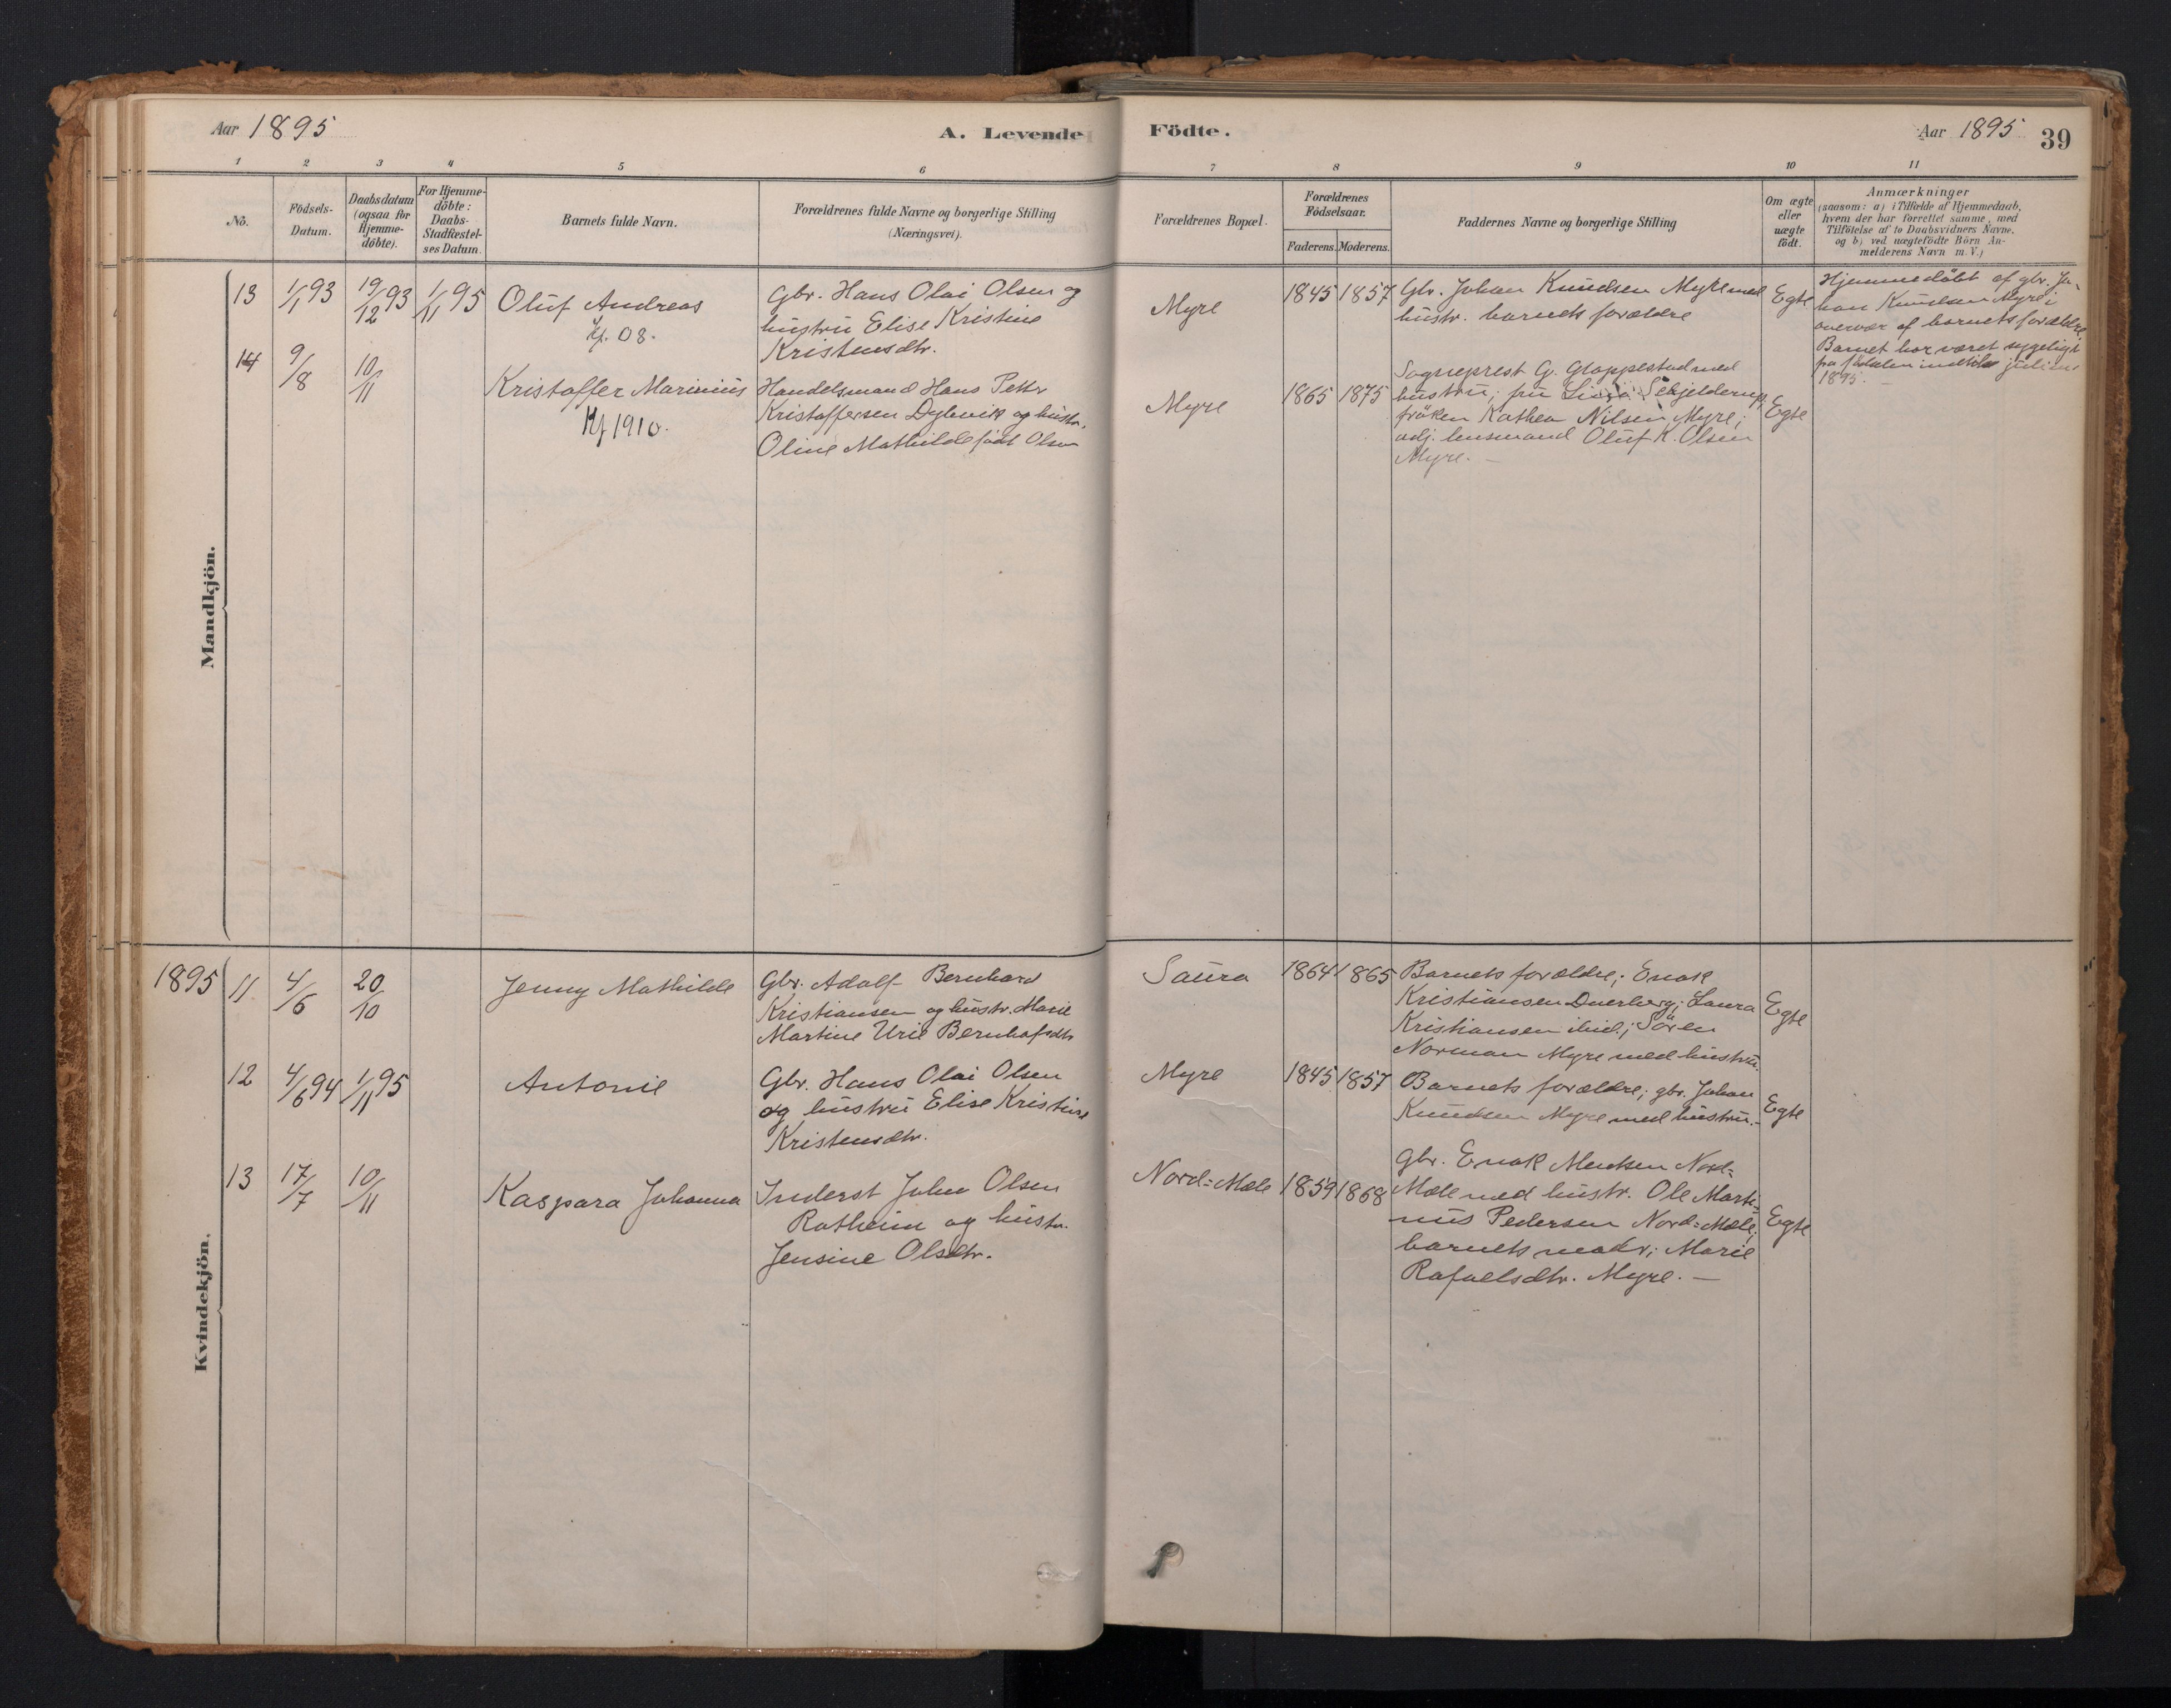 Aar 1895
A. Levende Födte.
Aar 1895
39
1 2 3 4 5 6 7 8 9 10 11
No.
Födsels-
Datum.
Daabsdatum
(ogsaa for
Hjemme-
döbte).
For Hjemme-
döbte:
Daabs-
Stadfæstel-
ses Datum.
Barnets fulde Navn.
Forældrenes fulde Navne og borgerlige Stilling
(Næringsvei).
Forældrenes Bopæl.
Forældrenes
Födselsaar.
Faderens. Moderens.
Faddernes Navne og borgerlige Stilling
Om ægte
eller
uægte
födt.
Anmærkninger
(saasom: a) i Tilfælde af Hjemmedaab,
hvem der har forrettet samme, med
Tilföielse af to Daabsvidners Navne,
og b) ved uægtefödte Börn An-
melderens Navn m. V.)
Mandkjön.
13
1/1 93
19/12 93
1/11 95
Oluf Andreas
Kf. 08.
Gbr. Hans Olai Olsen og
hustru Elise Kristine
Kristensdtr.
Myre
1845
1857
Gbr. Johan Knudsen Myre med
hustr. barnets forældre
Egte
Hjemmedöbt af gbr. Jo-
han Knudsen Myre i
overvær af barnets forældre.
Barnet har været sygeligt
fra födselen indtil juli
1895.
14
9/8
10/11
Kristoffer Marinius
Kf 1910.
Handelsmand Hans Petter
Kristoffersen Dybvik og hustr.
Oline Mathilde födt Olsen
Myre
1865
1875
Sogneprest G. Gloppestad med
hustru; fru Skjelderup,
fröken Kathea Nilsen Myre;
adj. lensmand Oluf K. Olsen
Myre. —
Egte
Kvindekjön.
1895
11
4/6
20/10
Jenny Mathilde
Gbr. Adolf Bernhard
Kristiansen og hustr. Marie
Martine Urie Bernhofsdtr
Saura
1864
1865
Barnets forældre; Enok
Kristiansen Dverberg; Laura
Kristiansen ibid.; Sören
Norman Myre med hustru.
Egte
12
4/6 94
1/11 95
Antonie
Gbr. Hans Olai Olsen
og hustru Elise Kristine
Kristensdtr.
Myre
1845
1857
Barnets forældre; gbr. Johan
Knudsen Myre med hustru.
Egte
13
17/7
10/11
Kaspara Johanna
Inderst John Olsen
Ratheim og hustr.
Jensine Olsdtr.
Nord-Mæle
1859
1868
Gbr. Enok Nord-
Mæle med hustr. Ole Marti-
nus Pedersen Nord-Mæle;
barnets moder; Marie
Rafaelsdtr. Myre. —
Egte